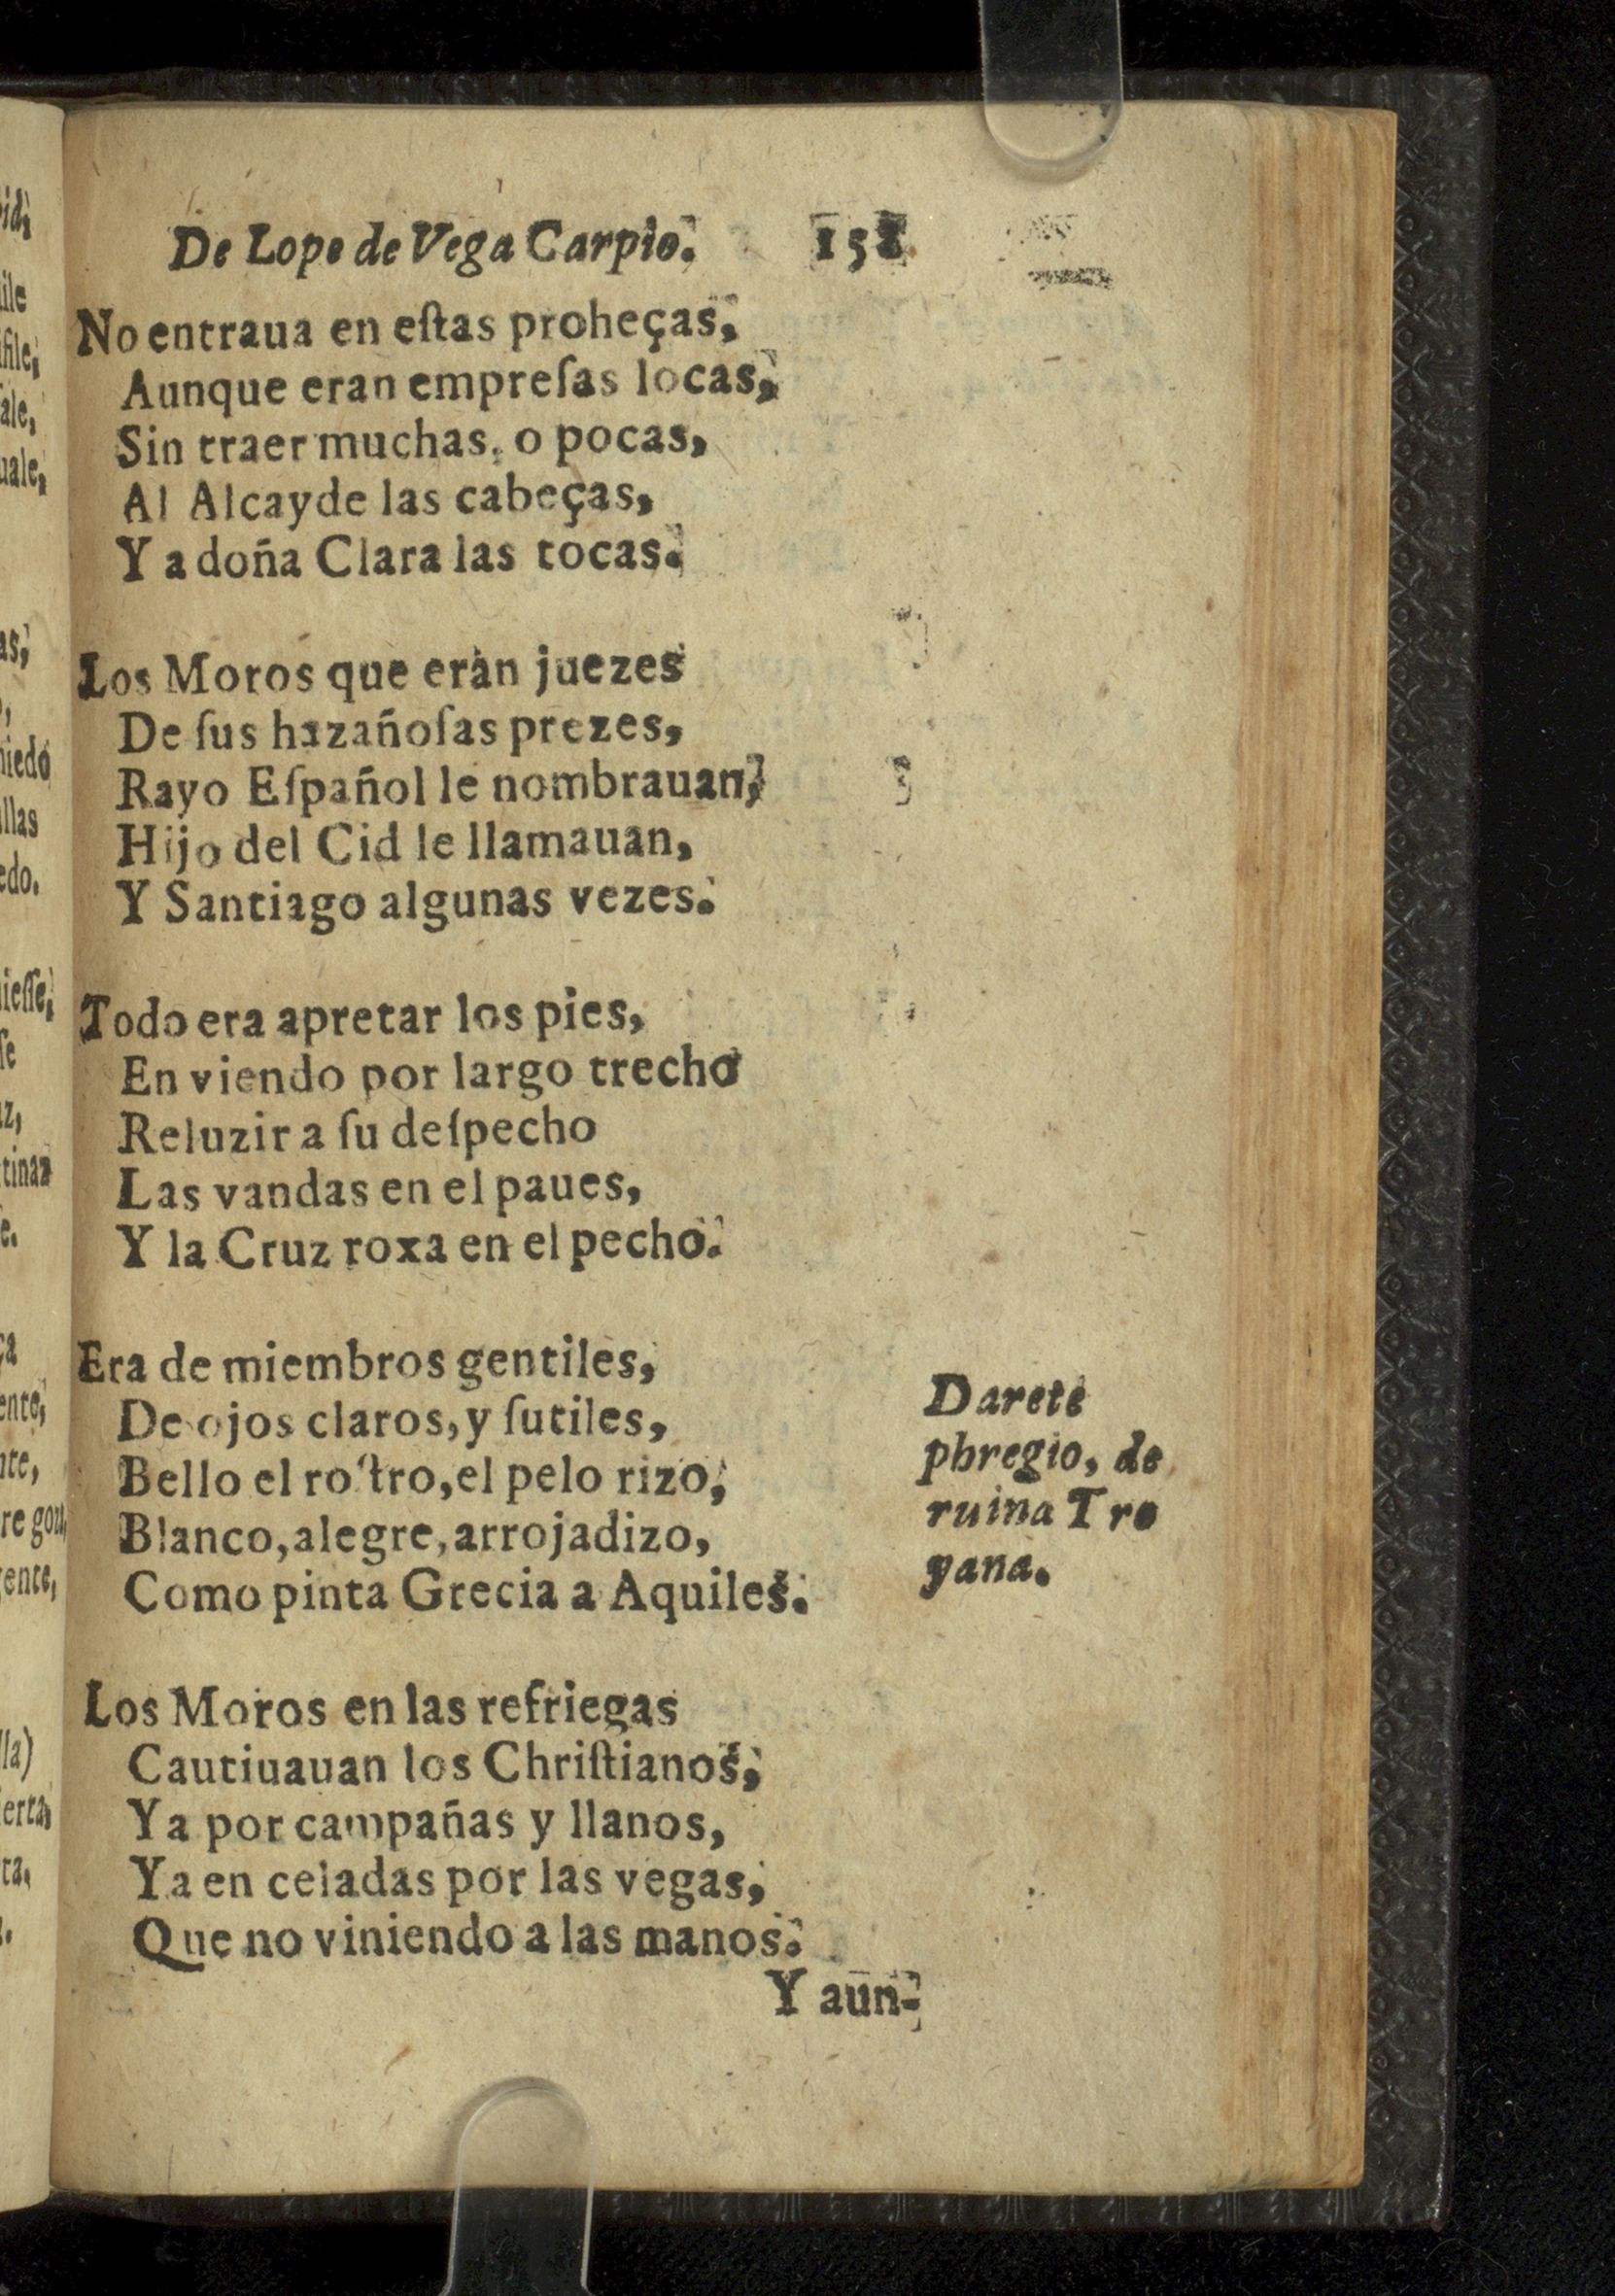 De Lope de Vega Carpio. 158
No entraua en eſtas proheças,
Aunque eran empreſas locas,
Sin traer muchas, o pocas,
Al Alcayde las cabeças,
Y a doña Clara las tocas.
Los Moros que eran juezes
De ſus hazañoſas prezes,
Rayo Eſpañol le nombrauan,
Hijo del Cid le llamauan,
Y Santiago algunas vezes.
Todo era apretar los pies,
En viendo por largo trecho
Reluzir a ſu deſpecho
Las vandas en el paues,
Y la Cruz roxa en el pecho.
Era de miembros gentiles,
De ojos claros, y ſutiles,
Bello el roſtro, el pelo rizo,
Blanco, alegre, arrojadizo,
Como pinta Grecia a Aquiles.
Darete
phregio, de
ruina Tro
yana.
Los Moros en las refriegas
Cautiuauan los Chriſtianos,
Ya por campañas y llanos,
Ya en celadas por las vegas,
Que no viniendo a las manos.
Y aun-